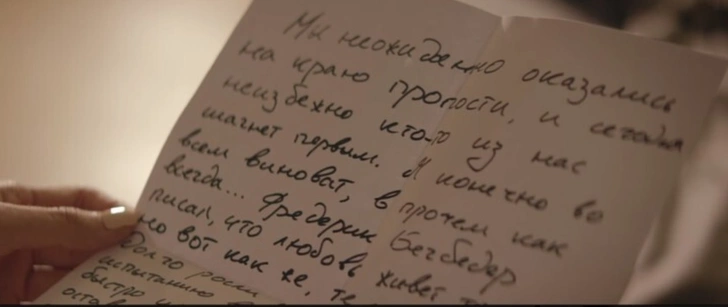 Мы неожиданно оказались
на краю пропости, и сегодня
неизбежно кто-то из нас
шагнет первым. Я конечно во
всем виноват, в прочем как
всегда... Фредерик Бегбедар
писал, что любовь живет
но вот как же, те
Долго
испытанию
быстро